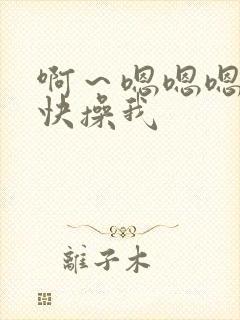 啊～嗯嗯嗯
快操我
離子木